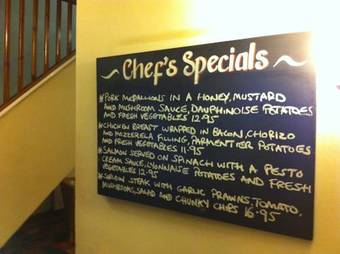 ~ Chef's Specials ~
*PORK MEDALLIONS IN A HONEY, MUSTARD
AND MUSHROOM SAUCE, DAUPHINOISE POTATOES
AND FRESH VEGETABLES 12.95
*CHICKEN BREAST WRAPPED IN BACON, CHORIZO
AND MOZERELLA FILLING, PARMENTIER POTATOES
AND FRESH VEGETABLES 11.95
*SALMON SERVED ON SPINACH WITH A PESTO
CREAM SAUCE, LYONNAISE POTATOES AND FRESH
VEGETABLES 12.95
*SIRLOIN STEAK WITH GARLIC PRAWNS, TOMATO,
MUSHROOMS, SALAD AND CHUNKY CHIPS 16.95